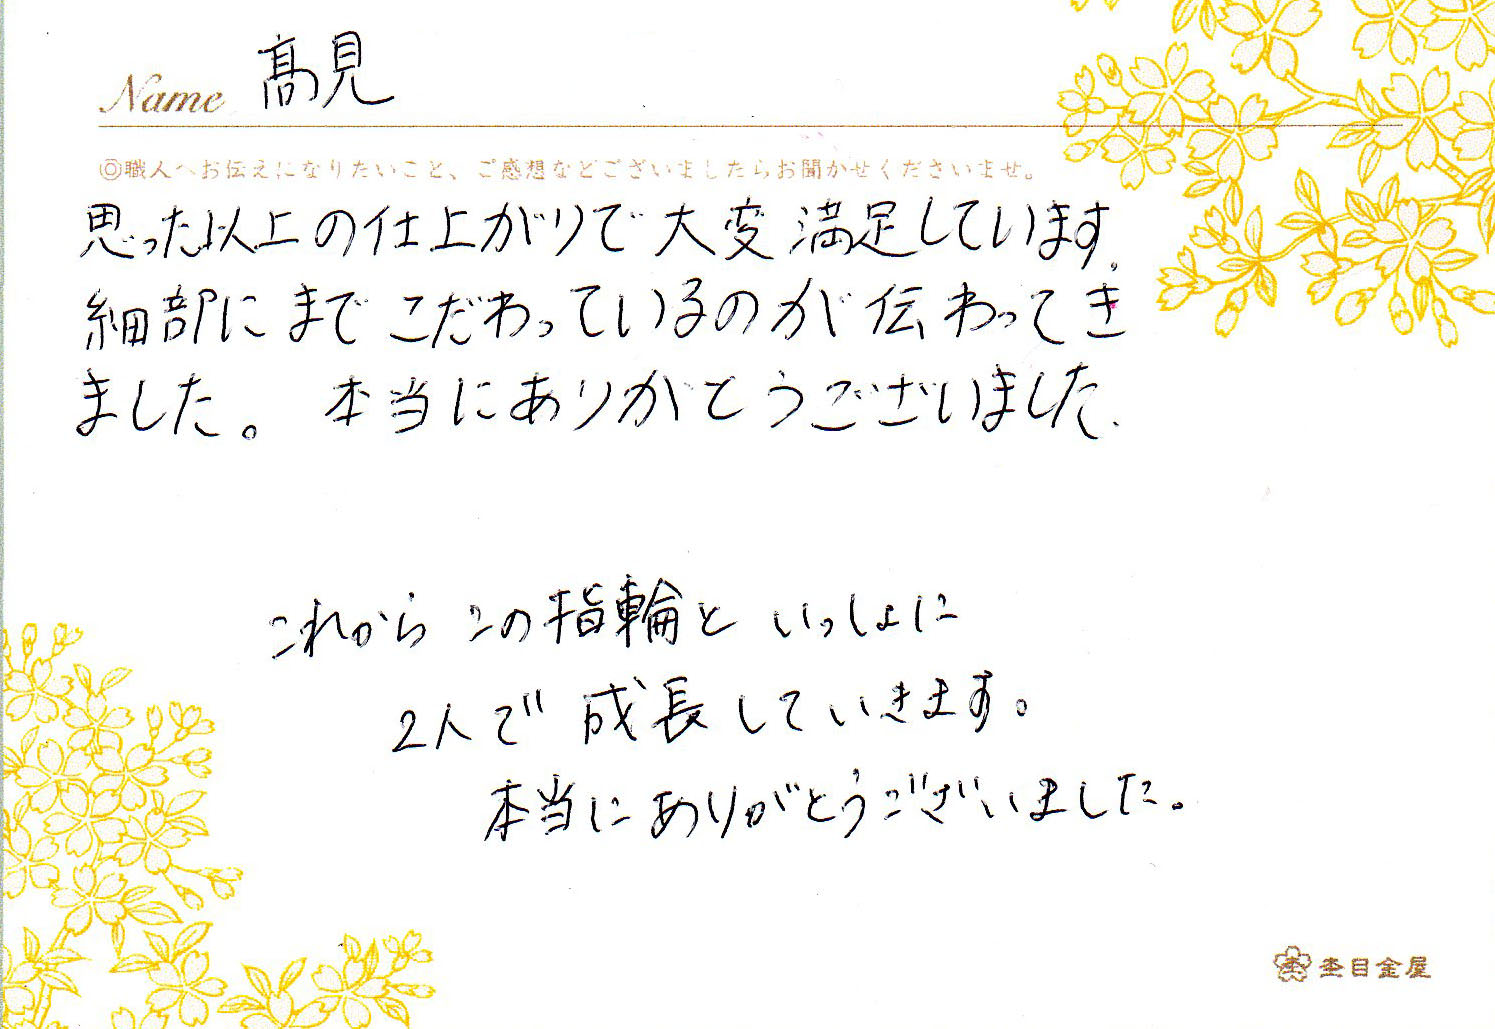 Name 髙見
◎職人へお伝えになりたいこと、ご感想などございましたらお聞かせくださいませ。
思った以上の仕上がりで大変満足しています。
細部にまでこだわっているのが伝わってき
ました。 本当にありがとうございました.
これから この指輪と いっしょに
2人で 成長していきます。
本当にありがとうございました。
杢目金屋